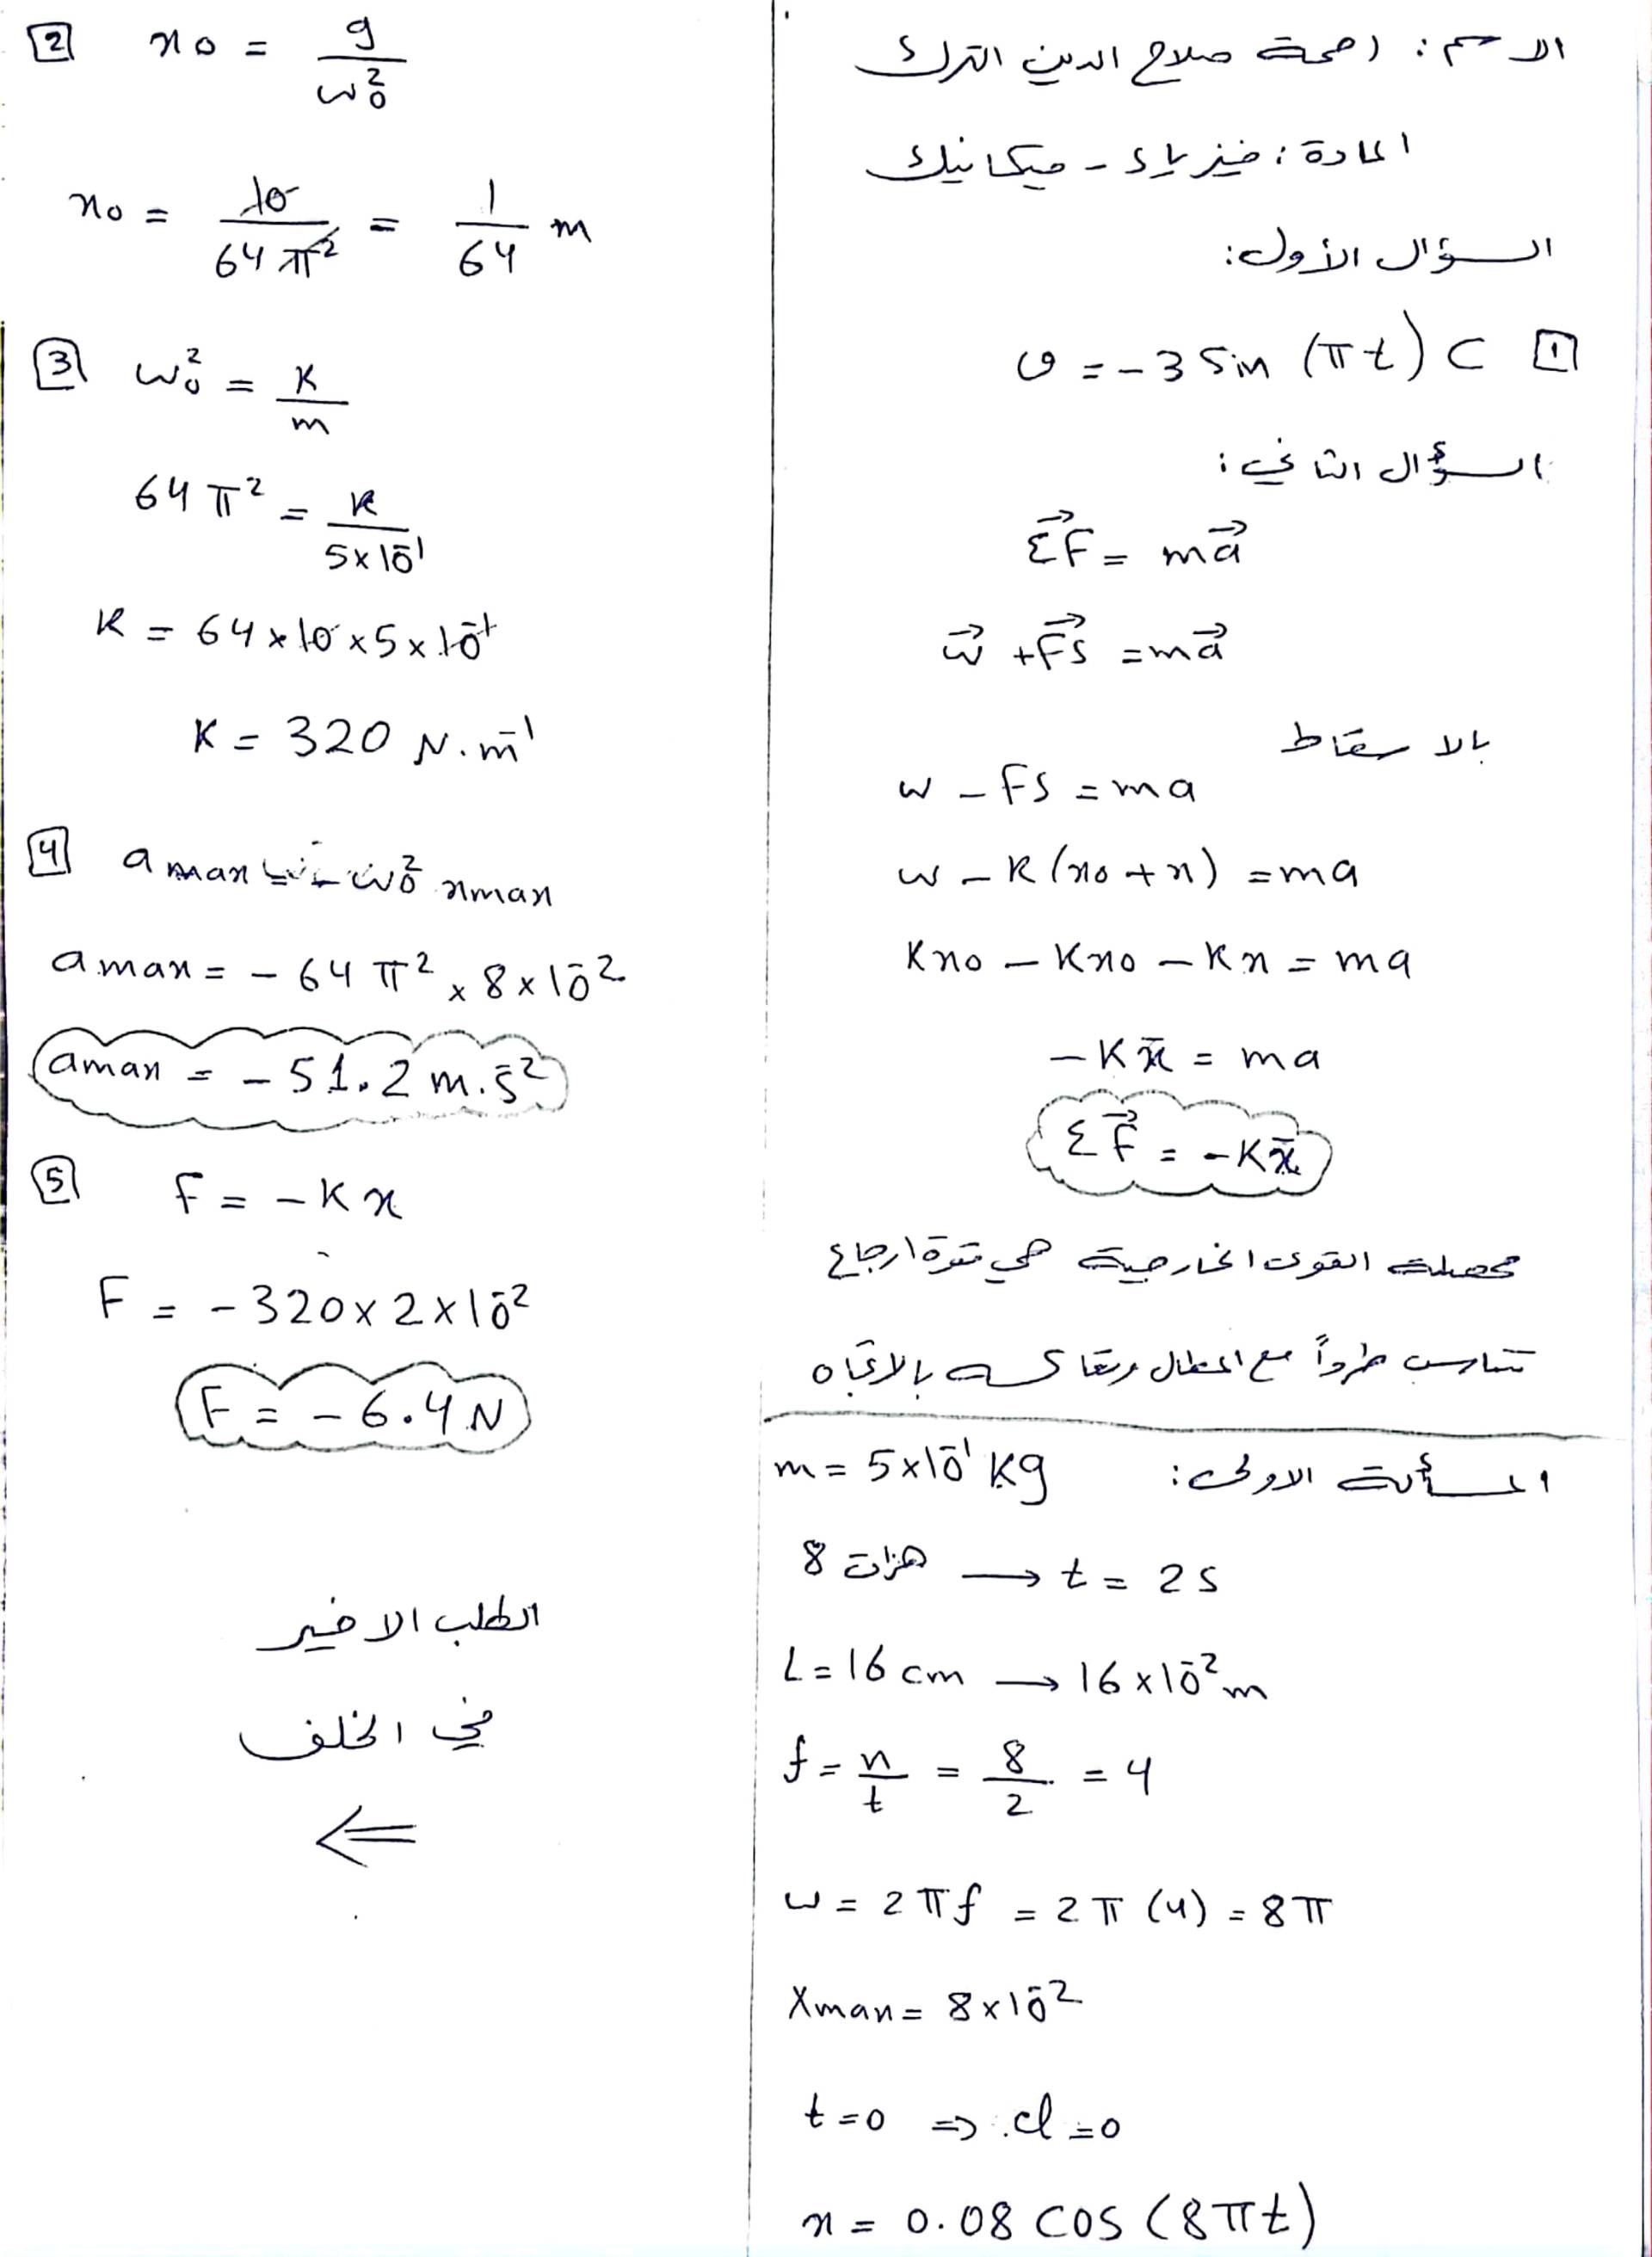 الاسم: رحمة صلاح الدين الترك
المادة: فيزياء - ميكانيك
السؤال الأول:
1 v = -3 Sin (πt) C
السؤال الثاني:
ΣF⃗ = ma⃗
w⃗ + Fs⃗ = ma⃗
بالاسقاط
w - Fs = ma
w - K(x0 + x) = ma
Kx0 - Kx0 - Kx = ma
-Kx̄ = ma
ΣF⃗ = -Kx̄
محصلة القوى الخارجية هي قوة ارجاع
تتناسب طرداً مع المطال وتعاكسه بالاتجاه
المسألة الاولى: m = 5x10⁻¹ Kg
8 هزات → t = 2s
L = 16 cm → 16x10⁻² m
f = n/t = 8/2 = 4
w = 2πf = 2π(4) = 8π
Xmax = 8x10⁻²
t = 0 ⇒ φ = 0
x = 0.08 cos (8πt)
2 x0 = g/w0²
x0 = 10/64π² = 1/64 m
3 w0² = K/m
64π² = K/5x10⁻¹
K = 64x10x5x10⁻¹
K = 320 N.m⁻¹
4 amax = - w0² xmax
amax = - 64π² x 8x10⁻²
amax = - 51.2 m.s⁻²
5 F = - Kx
F = - 320 x 2x10⁻²
F = - 6.4 N
الطلب الاخير
في الخلف
⇐